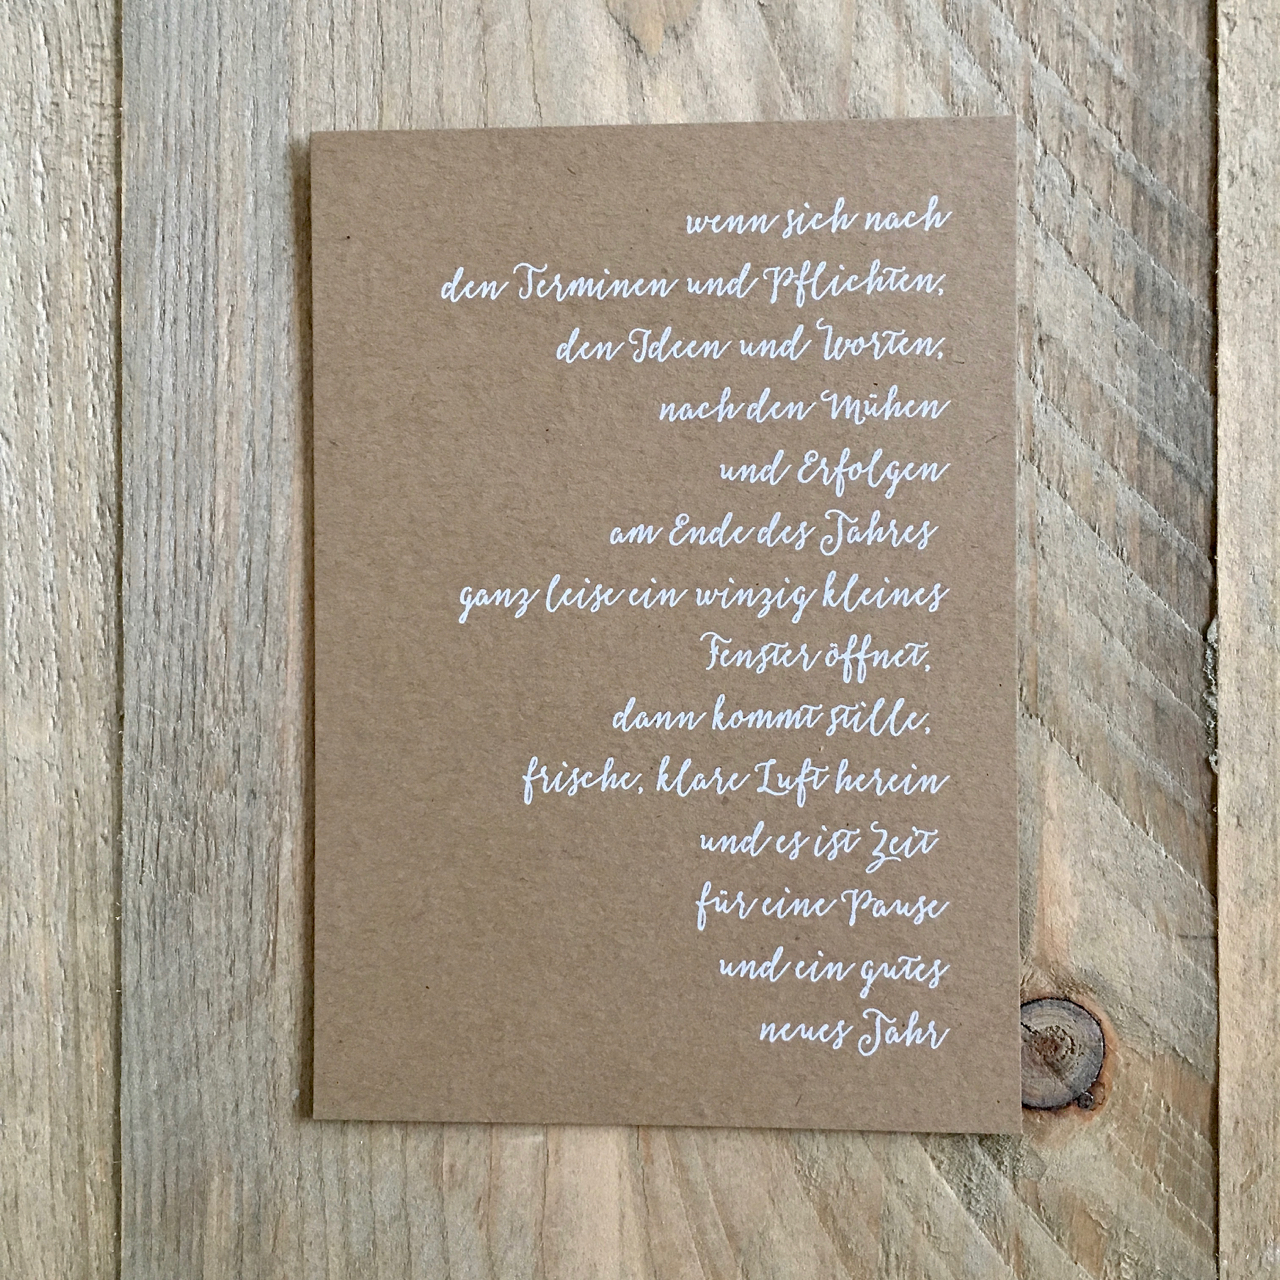 wenn sich nach
den Terminen und Pflichten,
den Ideen und Worten,
nach den Mühen
und Erfolgen
am Ende des Jahres
ganz leise ein winzig kleines
Fenster öffnet,
dann kommt stille,
frische, klare Luft herein
und es ist Zeit
für eine Pause
und ein gutes
neues Jahr